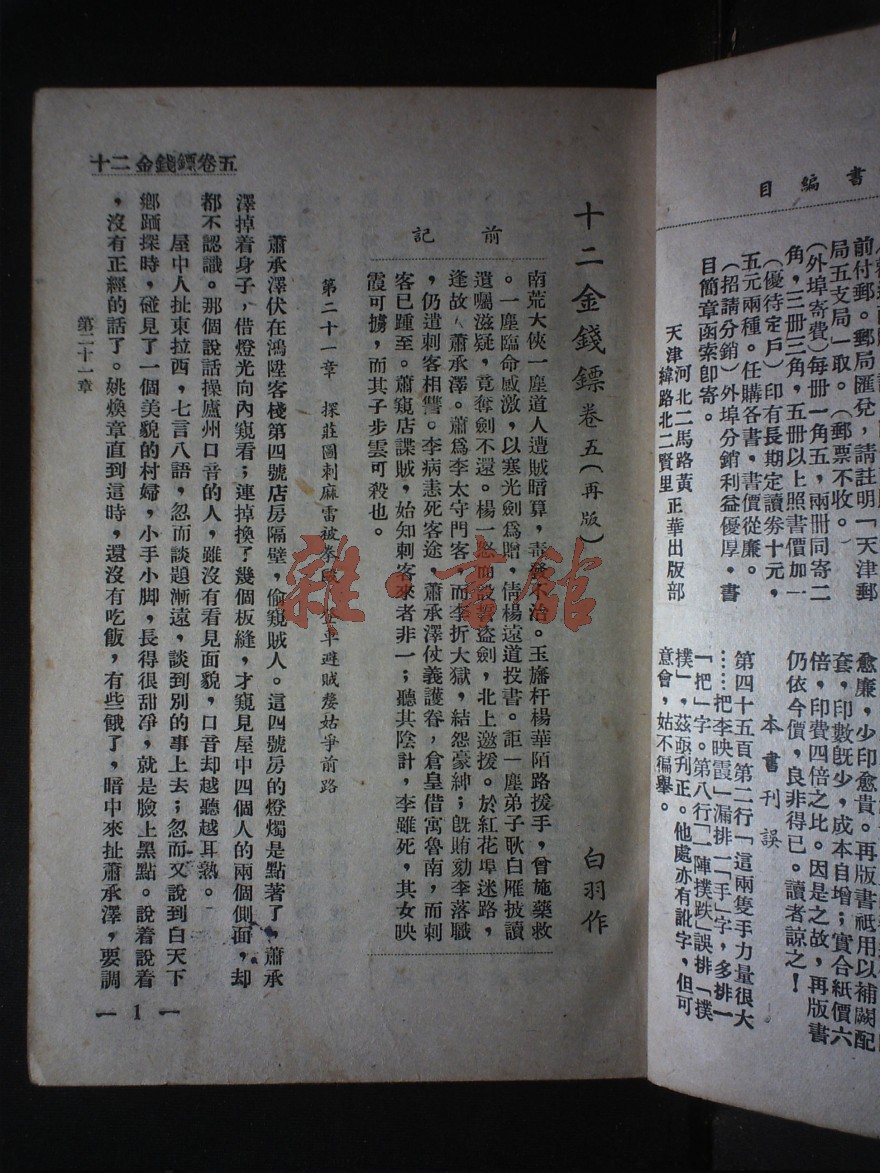 書編目
前付郵。郵局匯兌,請註明「天津郵
局五支局」取。(郵票不收。)
(外埠寄費)每冊一角五,兩冊同寄二
角,三冊三角,五冊以上照書價加一
(優待定戶)印有長期定讀券十元,
五元兩種。任購各書,書價從廉。
(招請分銷)外埠分銷利益優厚。書
目簡章函索卽寄。
天津河北二馬路黃
緯路北二賢里
正華出版部
愈廉,少印愈貴。再版書祇用以補闕配
套,印數旣少,成本自增;實合紙價六
倍,印費四倍之比。因是之故,再版書
仍依今價,良非得已。讀者諒之!
本書刊誤
第四十五頁第二行「這兩隻手力量很大
……把李映霞」漏排一「手」字,多排一
「把」字。第八行「一陣撲跌」誤排「撲
撲」,茲亟刋正。他處亦有訛字,但可
意會,姑不徧舉。
十二金錢鏢卷五(再版)
白羽作
前記
南荒大俠一塵道人遭賊暗算,毒發不治。玉旛杆楊華陌路援手,曾施藥救
。一塵臨命感激,以寒光劍爲贈,倩楊遠道投書。詎一塵弟子耿白雁披讀
遺囑滋疑,竟奪劍不還。楊一怒而設詈盜劍,北上邀援。於紅花埠迷路,
逢故人蕭承澤。蕭爲李太守門客,而李折大獄,結怨豪紳;旣賄劾李落職
,仍遣刺客相讐。李病恚死客途,蕭承澤仗義護眷,倉皇借寓魯南,而刺
客已踵至。蕭窺店諜賊,始知刺客來者非一;聽其陰計,李雖死,其女映
霞可擄,而其子步雲可殺也。
第二十一章 探莊圖刺麻雷被拳 避賊嫠姑爭前路
蕭承澤伏在鴻陞客棧第四號店房隔壁,偷窺賊人。這四號房的燈燭是點著了,蕭承
澤掉着身子,借燈光向內窺看;連掉換了幾個板縫,才窺見屋中四個人的兩個側面,却
都不認識。那個說話操廬州口音的人,雖沒有看見面貌,口音却越聽越耳熟。
屋中人扯東拉西,七言八語,忽而談題漸遠,談到別的事上去;忽而又說到白天下
鄉踩探時,碰見了一個美貌的村婦,小手小脚,長得很甜凈,就是臉上黑點。說着說着
,沒有正經的話了。姚煥章直到這時,還沒有吃飯,有些餓了,暗中來扯蕭承澤,要調
十二金錢鏢卷五
第二十一章
— 1 —
雜·書館